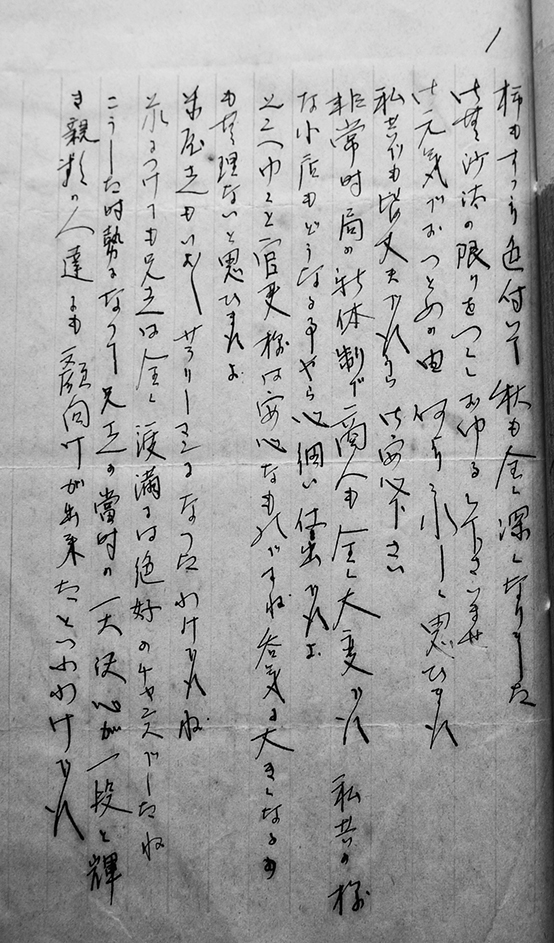 柿もすつかり色付いて 秋も全く深くなりました
御無沙汰の限りをつくしおゆるし下さいませ
御元気でおつとめの由 何より嬉しく思ひます
私共も皆丈夫ですから御安心下さい
非常時局の新体制で商人も全く大変です 私共の様
な小店もどうなる事やら心細い仕末ですよ
そこへゆくと官吏様は安心なものですね 呑気に大きくなるの
も無理ないと思ひますよ
米屋さんもいよ〱サラリーマンになつたわけですね
それにつけても兄さんは全く渡満には絶好のチャンスでしたね
こうした時勢になつて兄さんの當時の一大決心が一段と輝
き親類の人達にも顔向けが出来たといふわけです